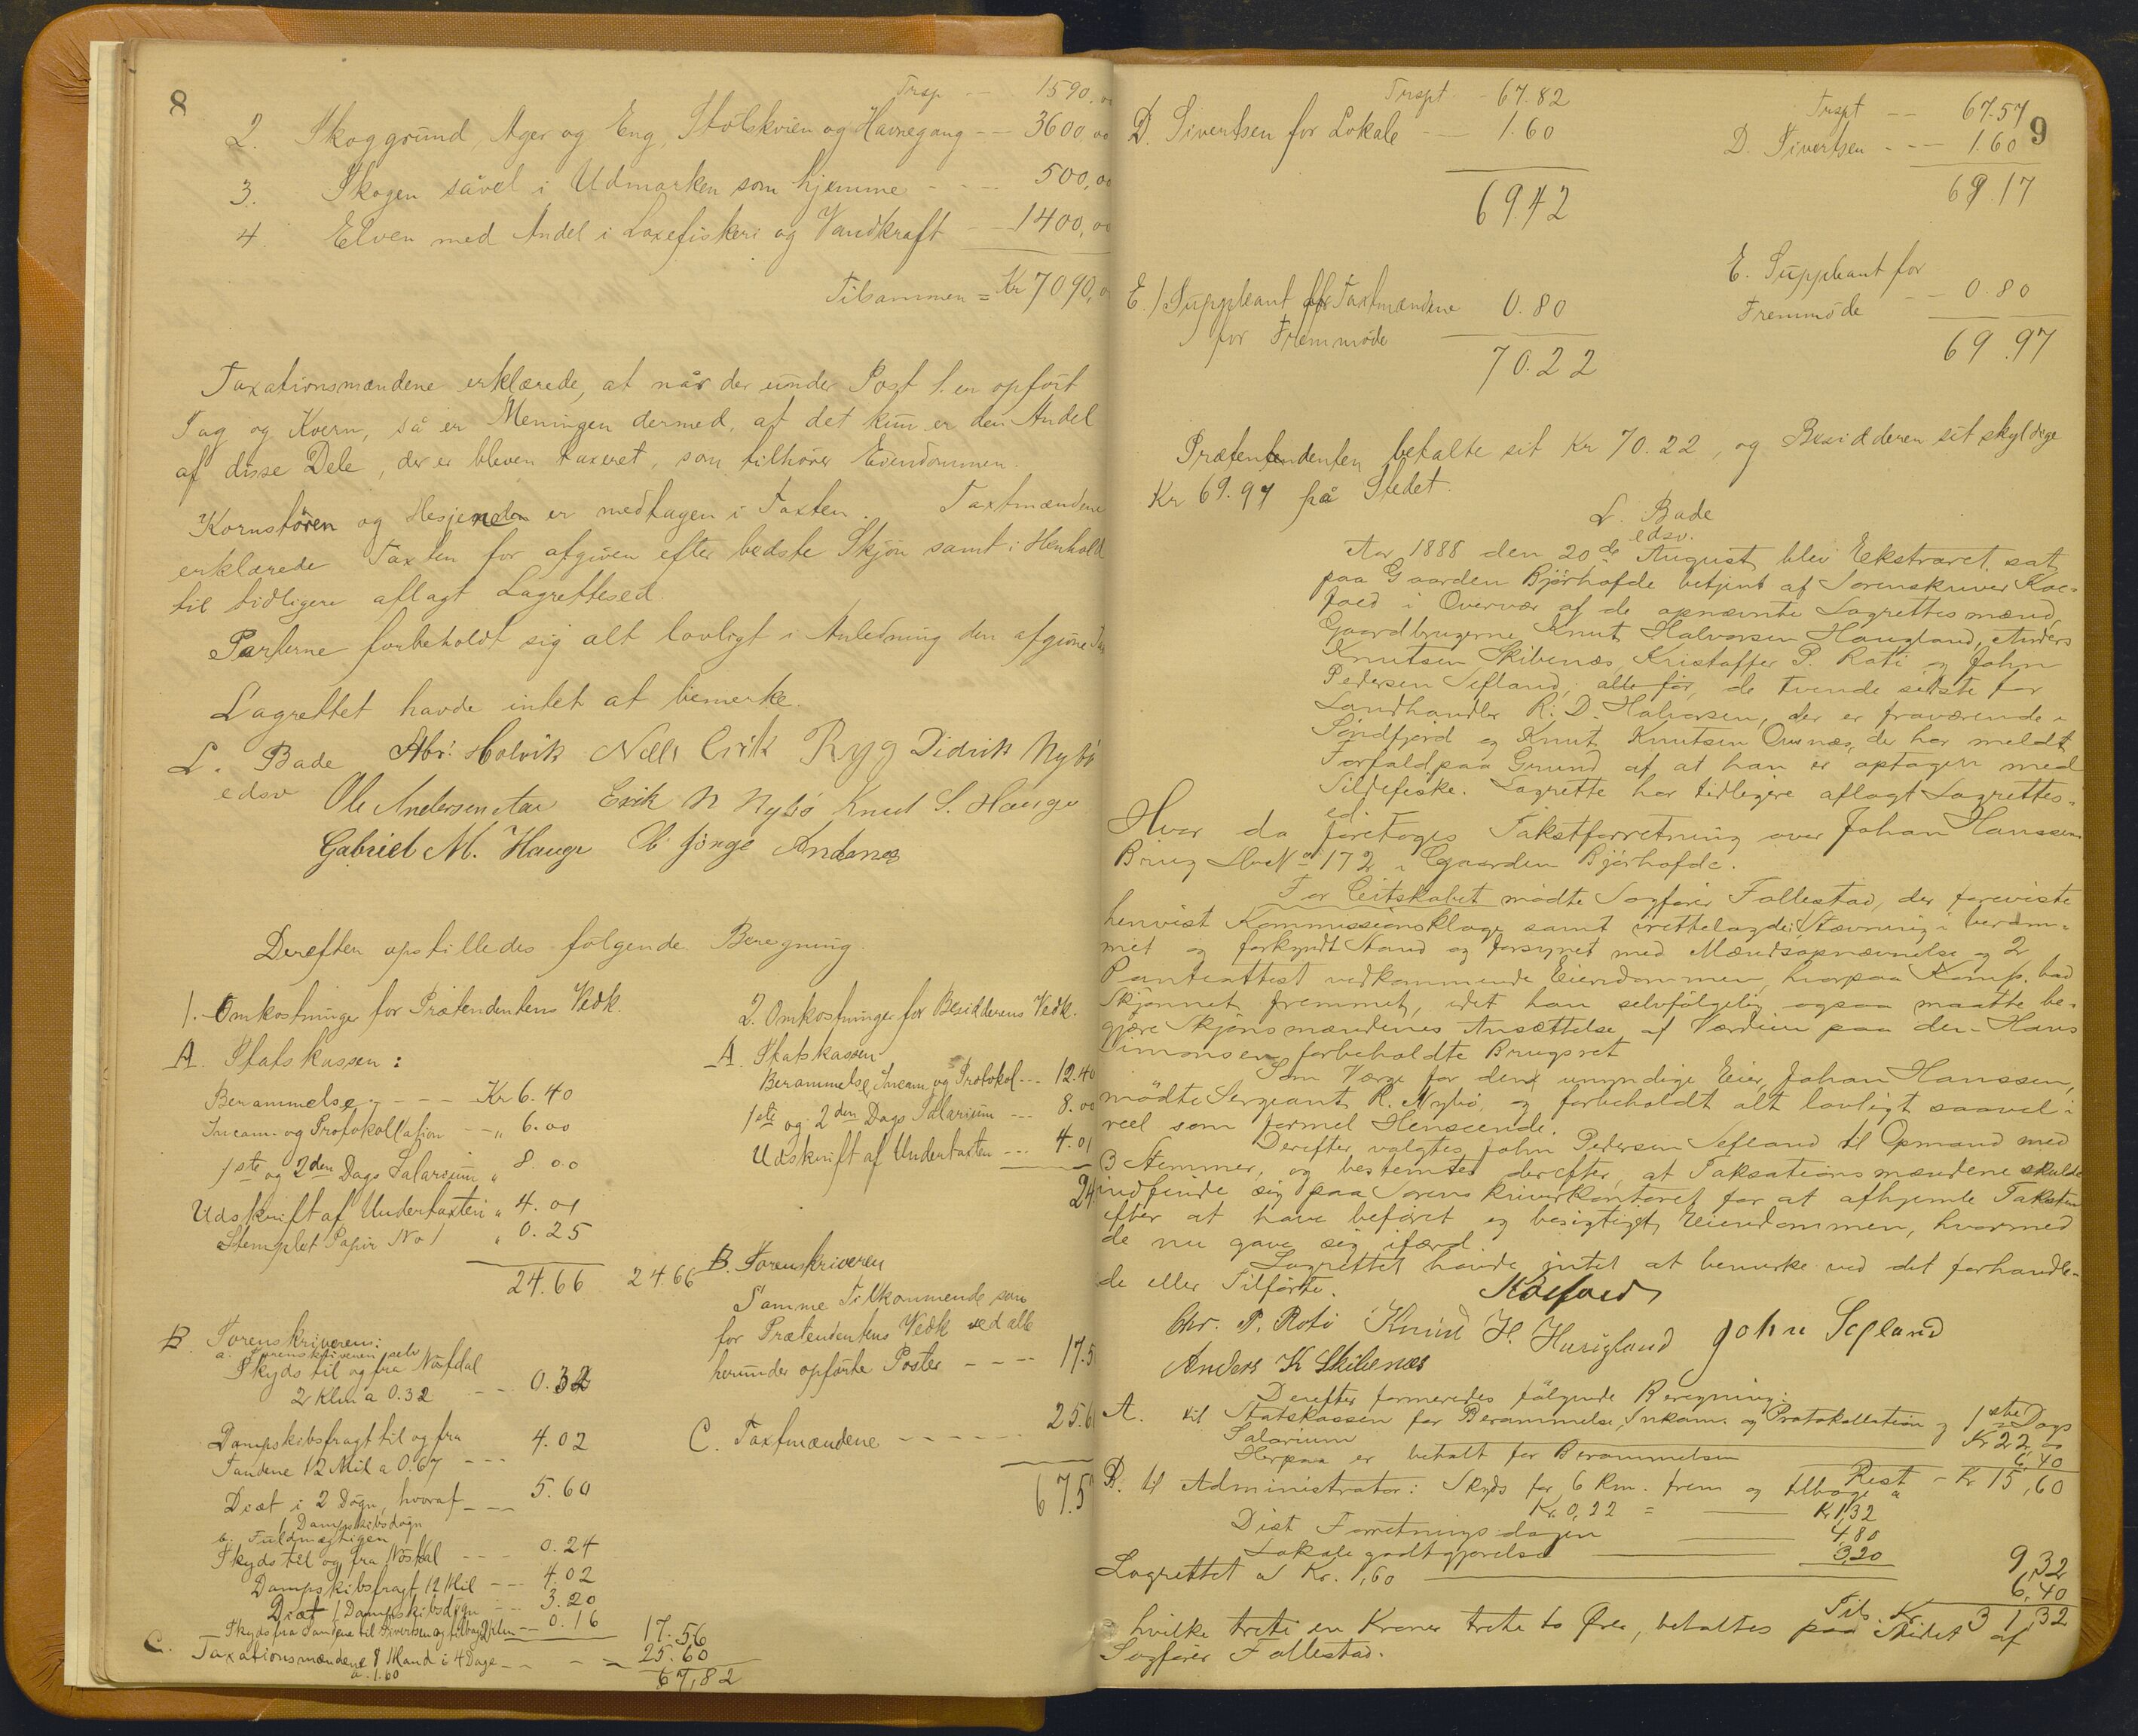 8
Trsp -- 1590,00
2. Skoggrund, Ager og Eng, Stölskvien og Havnegang -- 3600,00
3. Skogen såvel i Udmarken som hjemme ---- 500,00
4. Elven med Andel i Laxefiskeri og Vandkraft -- 1400,00
Tilsammen = Kr 7090,0
Taxationsmændene erklærede, at når der under Post 1. er opfört
Sag og Kvern, så er Meningen dermed, at det kun er den Andel
af disse Dele, der er bleven taxeret, som tilhörer Eiendommen.
Kornstören og Hesjerne er medtagen i Taxten. Taxtmændene
erklærede Taxten for afgiven efter bedste Skjön samt i Henhold
til tidligere aflagt Lagrettesed.
Parterne forbeholdt sig alt lovligt i Anledning den afgivne Tax
Lagrettet havde intet at bemerke.
L. Bade Abr. Holvik Nells Erik Ryg Didrik Nybö
edsv
Ole Andersen Aaa Erik N Nybö Knud S. Hauge
Gabriel M. Hauge B. Jönge Andenes
Dereften opstilledes fölgende Beregning.
1. Omkostninger for Prætendentens Vedk.
A. Statskassen:
Berammelse ---- Kr 6.40
Incam- og Protokollation -- „ 6.00
1ste og 2den Dags Salarium „ 8.00
Udskrift af Undertaxten „ 4.01
Stemplet Papir No 1 „ 0.25
24.66 24.66
B. Sorenskriveren:
a. Sorenskriveren selv
Skyds til og fra Nöstdal
2 Klm a 0.32 -- 0.32
Dampskibsfragt til og fra
Sandene 12 Mil a 0.67 --- 4.02
Diæt i 2 Dögn, hvoraf --- 5.60
1 Dampskibsdögn
b. Fuldmægtigen
Skyds til og fra Nöstdal --- 0.24
Dampskibsfragt 12 Mil --- 4.02
Diæt 1 Dampskibsdögn --- 3.20
Skyds fra Sandene til Sivertsen og tilbage 2 klm -- 0.16 17.56
C. Taxationsmændene 8 Mand i 4 Dage --- 25.60
a 1.60 67,82
2. Omkostninger for Besidderens Vedk.
A. Statskassen
Berammelse, Incam og Protokol --- 12.40
1ste og 2den Dags Salarium --- 8.00
Udskrift af Undertaxten --- 4.01
24
B. Sorenskriveren
Samme Tilkommende som
for Prætendentens Vedk ved alle
herunder opförte Poster ---- 17.5
C. Taxtmændene ------ 25.6
67.5
9
Trspt - 67.82
D. Sivertsen for Lokale -- 1.60
69.42
E.) Suppleant for Taxtmændene 0.80
for Fremmöde
70.22
Trspt -- 67.57
D. Sivertsen --- 1.60
69.17
E. Suppleant for
Fremmöde -- 0.80
69.97
Prætendenten betalte sit Kr 70.22 og Besidderen sit skyldige
Kr 69.97 på Stedet.
L. Bade
edsv.
Aar 1888 den 20de August blev Ekstraret sat
paa Gaarden Björhofde betjent af Sorenskriver Koe-
foed i Overvær af de opnævnte Lagrettesmænd,
Gaardbrugerne Knut Halvorsen Haugland, Anders
Knutsen Skibenæs, Kristoffer P. Roti og John
Pedersen Sefland, alle for, de tvende sidste for
Landhandler R. D. Halvorsen, der er fraværende i
Söndfjord og Knut Knutsen Ousnæs, der har meldt
Forfald paa Grund af at han er optagen med
Sildefiske. Lagrette har tidligere aflagt Lagrettes-
ed.
Hvor da foretoges Takstforretning over Johan Hanssen
Brug Lbr No 172 i Gaarden Björhofde.
For Citskabet mödte Sagförer Follestad, der foreviste
henvist Kommissionsklage samt irettelagde Stævning i beram-
met og forkyndt Stand og forsynet med Mændsopnævnelse og 2
Panteattest vedkommende Eiendommen, hvorpaa Komp. bad
Skjönnet fremmet, idet han selvfölgelig ogsaa maatte be-
gjære Skjönsmændenes Ansættelse af Værdien paa den Hans
Simonsen forbeholdte Brugsret
Som Værge for den umyndige Eier, Johan Hanssen,
mödte Sergeant R. Nybö, og forbeholdt alt lovligt saavel i
reel som formel Henseende.
Derefter valgtes John Pedersen Sefland til Opmand med
3 Stemmer, og bestemtes derefter, at Taksationsmændene skulde
indfinde sig paa Sorenskriverkontoret for at afhjemle Taksten
efter at have befaret og besigtiget Eiendommen, hvormed
de nu gave sig ifærd.
Lagrettet havde intet at bemerke ved det forhandle-
de eller Tilförte.
Koefoed
Chr. P. Roti Knud H. Haugland John Sefland
Anders K Skibenæs
Derefter formeredes fölgende Beregning:
A. til Statskassen for Berammelse, Inkam. og Protokollation og 1ste Dags
Salarium Kr 22,00
Herpaa er betalt for Berammelsen 6,40
Rest - Kr 15,60
B. til Administrator: Skyds for 6 Km. frem og tilbage a
Kr. 0,22 = Kr 1,32
Diæt Forretningsdagen 4,80
Lokale godtgjörelse 3,20 9,32
Lagrettet a Kr. 1,60 6,40
Tils. Kr 31,32
hvilke treti en Kroner treti to Öre, betaltes paa Stedet af
Sagförer Follestad.